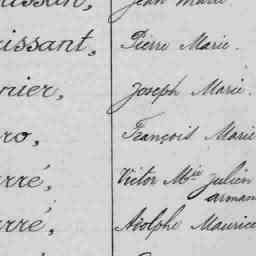 Jean Marie
issant, Pierre Marie.
nier, Joseph Marie.
ro, François Marie
rré, Victor Mie Julien
arman
rré, Adolphe Maurice